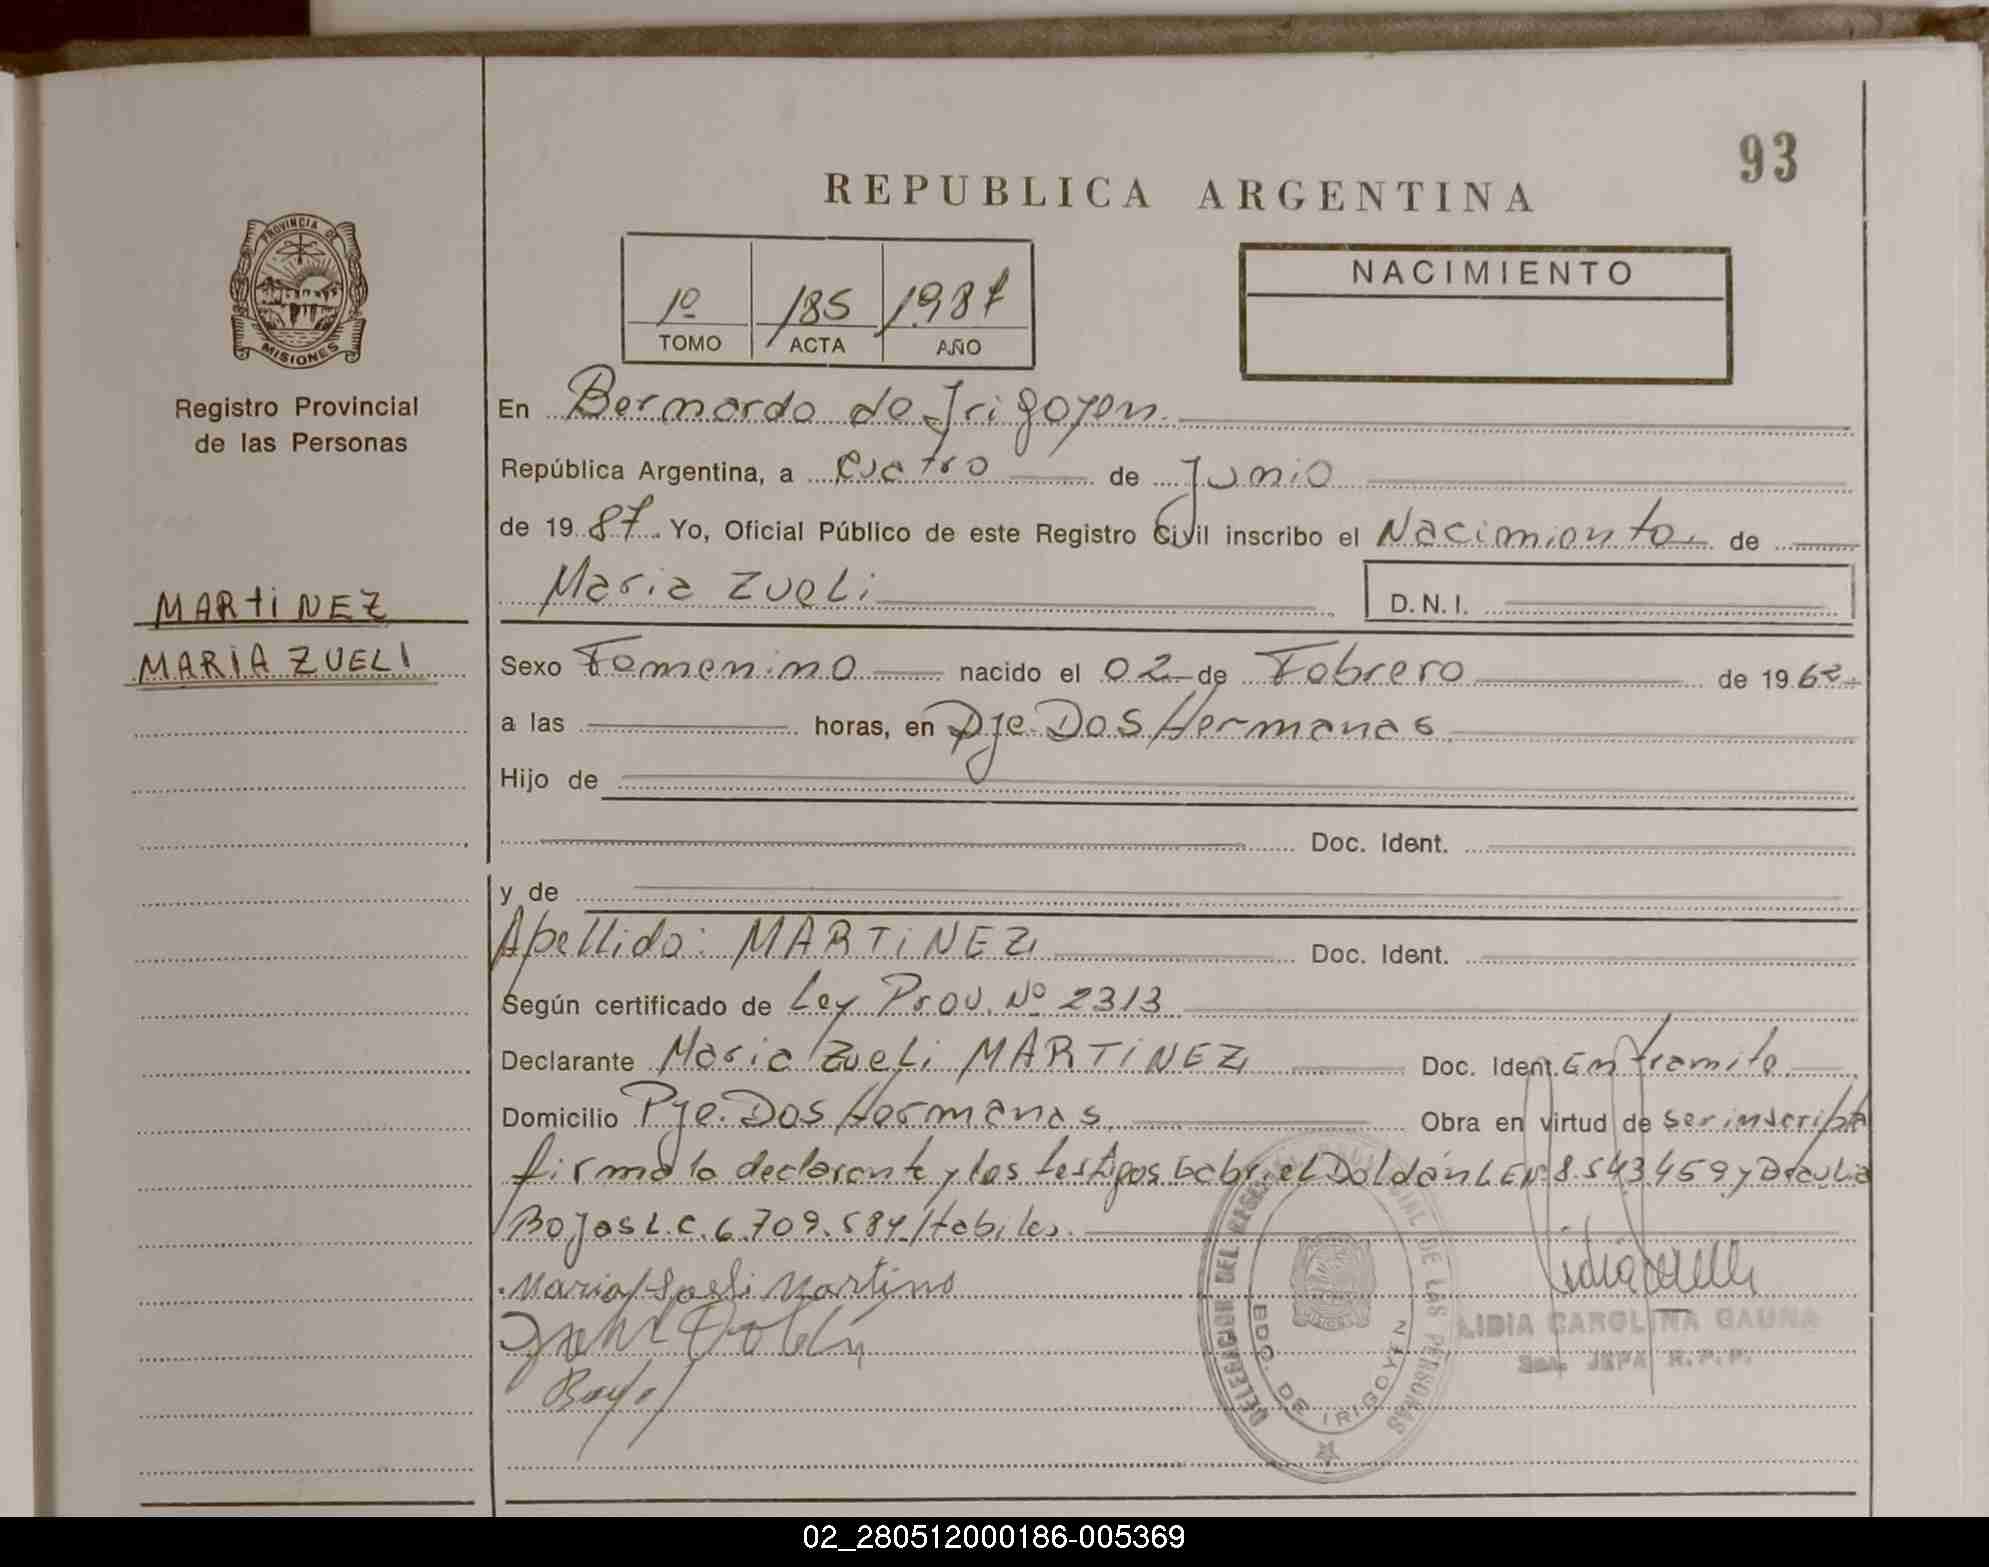 93
REPUBLICA ARGENTINA
PROVINCIA DE
MISIONES
Registro Provincial
de las Personas
1º 185 1987
TOMO ACTA AÑO
NACIMIENTO
En Bernardo de Irigoyen
República Argentina, a cuatro de Junio
de 1987. Yo, Oficial Público de este Registro Civil inscribo el Nacimiento de
Maria Zueli D.N.I.
MARTINEZ
MARIA ZUELI
Sexo Femenino nacido el 02 de Febrero de 1962
a las horas, en Pje. Dos Hermanas
Hijo de
Doc. Ident.
y de
Apellido: MARTINEZ Doc. Ident.
Según certificado de Ley Prov. Nº 2313
Declarante Maria Zueli MARTINEZ Doc. Ident. En tramite
Domicilio Pje. Dos Hermanas. Obra en virtud de ser inscripta
firma la declarante y los testigos Gabriel Doldán L.E Nº 8.543.459 y
Bojas L.C. 6.709.584 Habiles.
Maria Martines
DELEGACION DEL DE LAS PERSONAS
BDO. DE IRIGOYEN
LIDIA CAROLINA GAUNA
JEFA R.P.P.
02_280512000186-005369